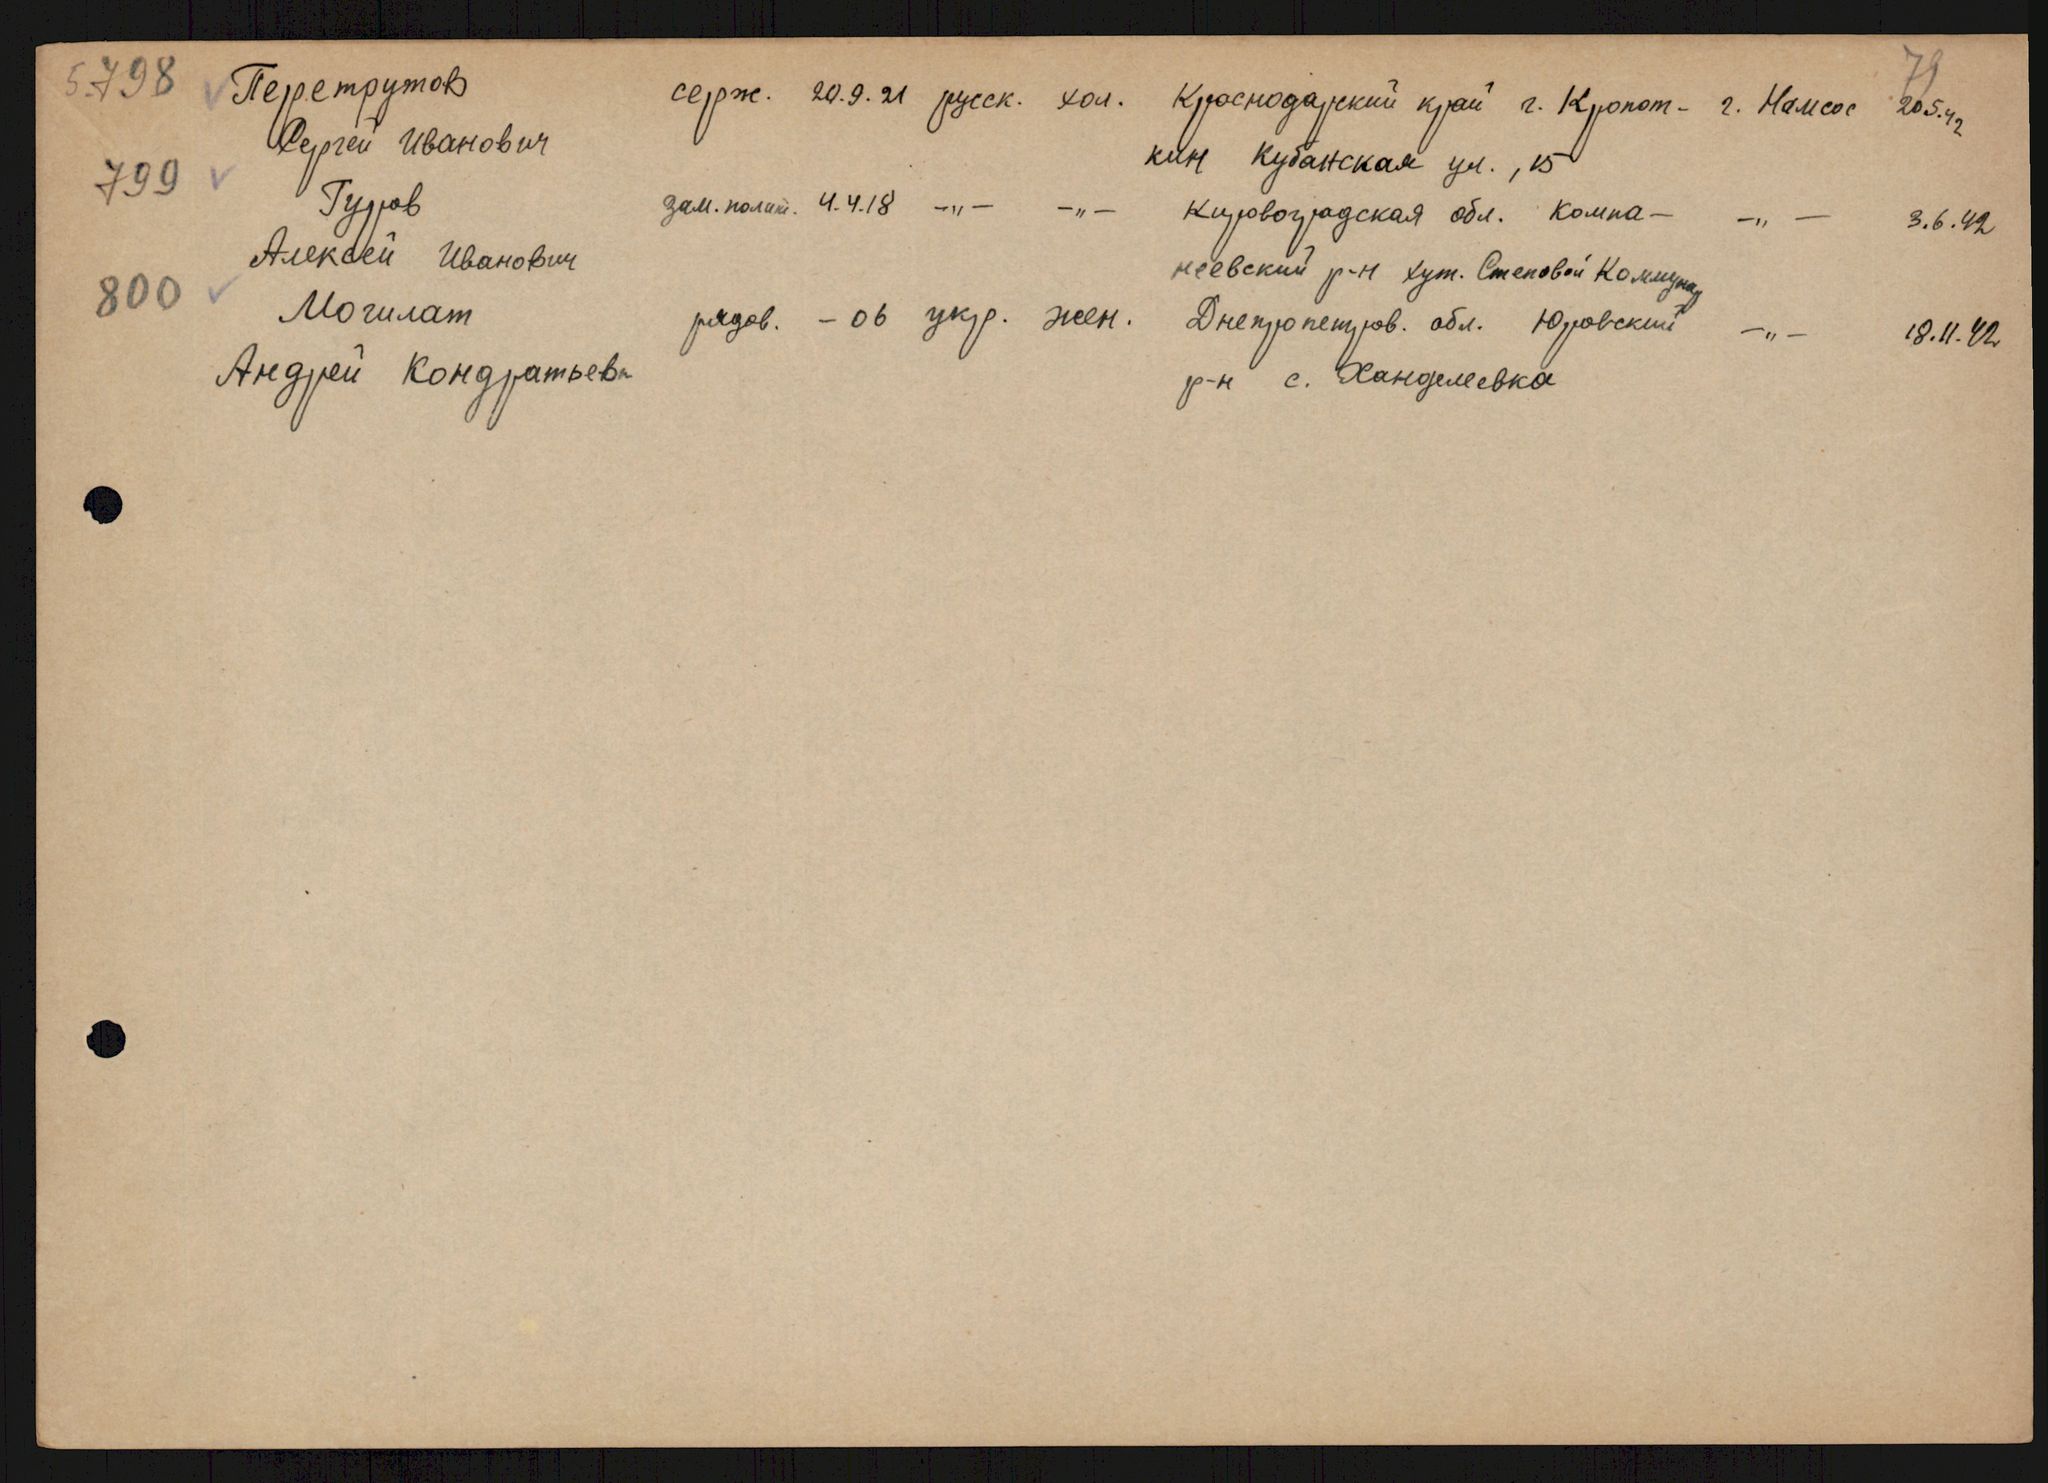 79
5.798 ✓ Перетрутов серж. 20.9.21 русск. хол. Краснодарский край г. Кропот- г. Намсос 20.5.42
Сергей Иванович кин Кубанская ул., 15
799 ✓ Гуров зам. полит. 4.4.18 -"- -"- Кировоградская обл. Компа- -"- 3.6.42
Алексей Иванович неевский р-н хут. Степовой Коммунар
800 ✓ Могилат рядов. - 06 укр. жен. Днепропетров. обл. Юровский -"- 18.11.42
Андрей Кондратьев р-н с. Ханделеевка